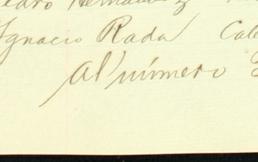 Pedro Hernandez
Ignacio Rada Cal
Al número